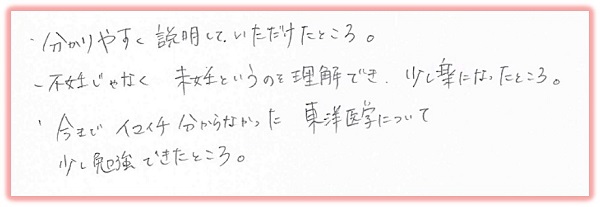 ・分かりやすく説明して、いただけたところ。
・不妊じゃなく 未妊というのを理解でき、少し楽になったところ。
・今まで イマイチ 分からなかった 東洋医学について
少し勉強できたところ。